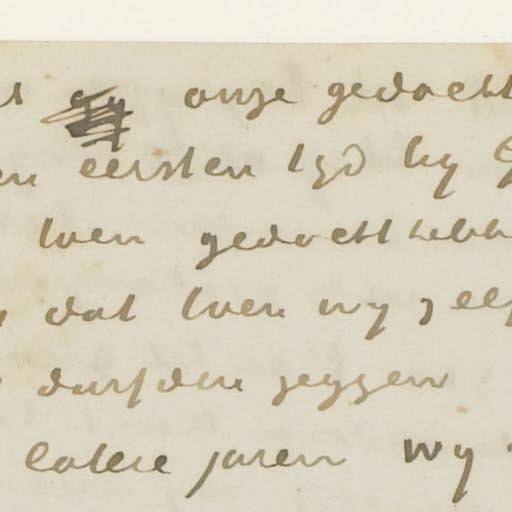 onze gedacht
eersten tyd by
toen gedacht hebb
dat toen wy zelf
durfden zeggen
latere jaren wy